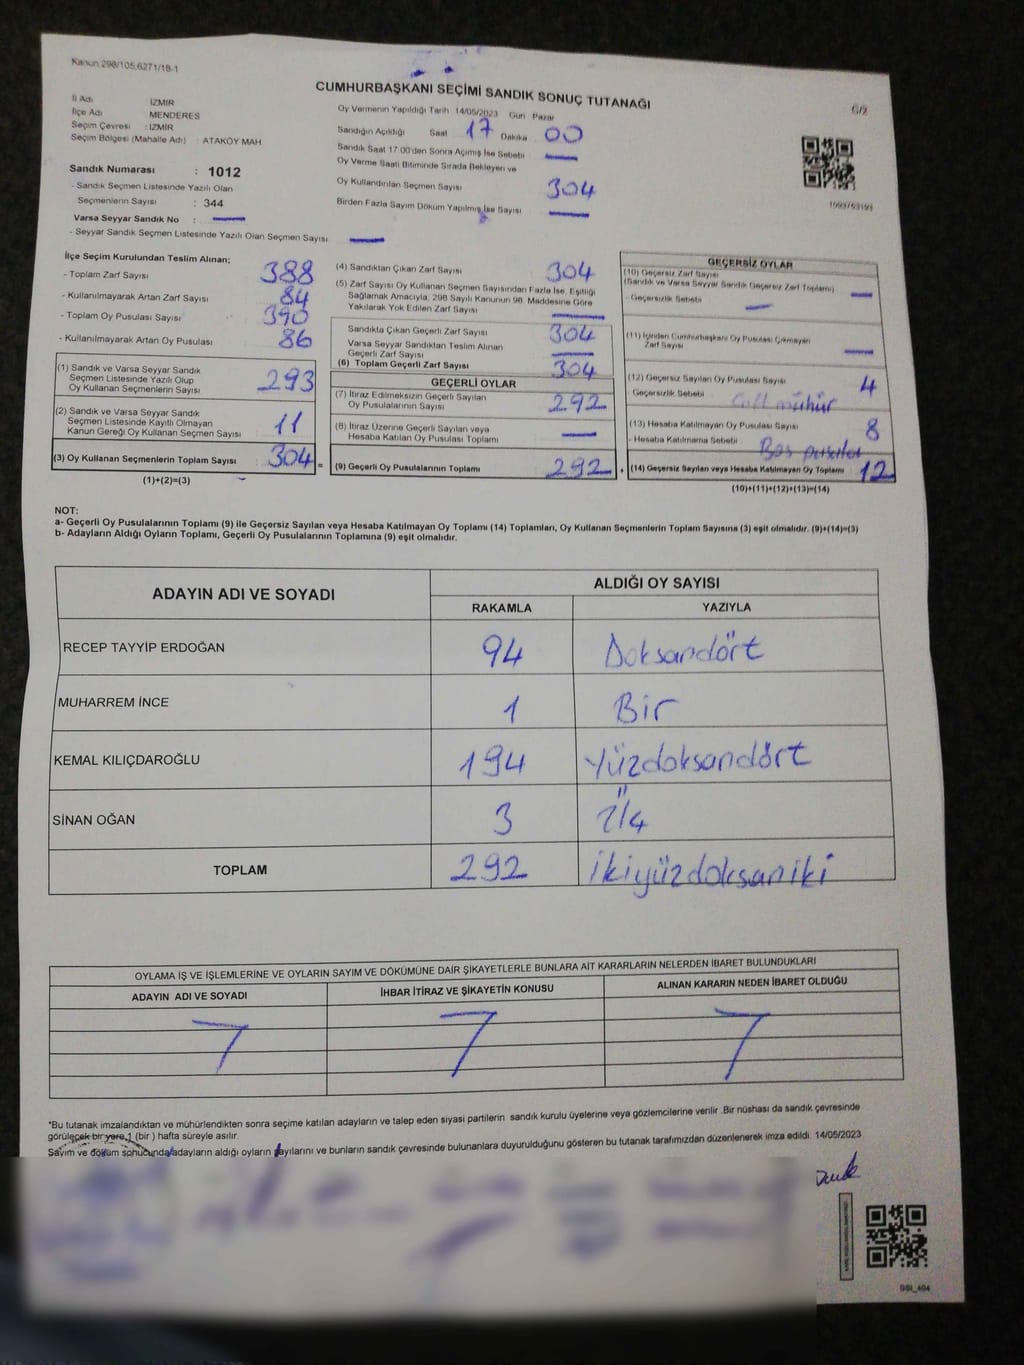 Kanun:298/105,6271/18-1
CUMHURBAŞKANI SEÇİMİ SANDIK SONUÇ TUTANAĞI
İl Adı : İZMİR
İlçe Adı : MENDERES
Seçim Çevresi : İZMİR
Seçim Bölgesi (Mahalle Adı) : ATAKÖY MAH.
Sandık Numarası : 1012
- Sandık Seçmen Listesinde Yazılı Olan
Seçmenlerin Sayısı : 344
Varsa Seyyar Sandık No : —
- Seyyar Sandık Seçmen Listesinde Yazılı Olan Seçmen Sayısı —
Oy Vermenin Yapıldığı Tarih 14/05/2023 Gün Pazar
Sandığın Açıldığı Saat 17 Dakika 00
Sandık Saat 17:00'den Sonra Açılmış İse Sebebi —
Oy Verme Saati Bitiminde Sırada Bekleyen ve
Oy Kullandırılan Seçmen Sayısı 304
Birden Fazla Sayım Döküm Yapılmış İse Sayısı —
6/2
İlçe Seçim Kurulundan Teslim Alınan;
- Toplam Zarf Sayısı 388
- Kullanılmayarak Artan Zarf Sayısı 84
- Toplam Oy Pusulası Sayısı 390
- Kullanılmayarak Artan Oy Pusulası 86
(1) Sandık ve Varsa Seyyar Sandık
Seçmen Listesinde Yazılı Olup
Oy Kullanan Seçmenlerin Sayısı 293
(2) Sandık ve Varsa Seyyar Sandık
Seçmen Listesinde Kayıtlı Olmayan
Kanun Gereği Oy Kullanan Seçmen Sayısı 11
(3) Oy Kullanan Seçmenlerin Toplam Sayısı 304 =
(1)+(2)=(3)
(4) Sandıktan Çıkan Zarf Sayısı 304
(5) Zarf Sayısı Oy Kullanan Seçmen Sayısından Fazla İse, Eşitliği
Sağlamak Amacıyla, 298 Sayılı Kanunun 98. Maddesine Göre
Yakılarak Yok Edilen Zarf Sayısı —
Sandıkta Çıkan Geçerli Zarf Sayısı 304
Varsa Seyyar Sandıktan Teslim Alınan
Geçerli Zarf Sayısı —
(6) Toplam Geçerli Zarf Sayısı 304
GEÇERLİ OYLAR
(7) İtiraz Edilmeksizin Geçerli Sayılan
Oy Pusulalarının Sayısı 292
(8) İtiraz Üzerine Geçerli Sayılan veya
Hesaba Katılan Oy Pusulası Toplamı —
(9) Geçerli Oy Pusulalarının Toplamı 292 +
GEÇERSİZ OYLAR
(10) Geçersiz Zarf Sayısı
(Sandık ve Varsa Seyyar Sandık Geçersiz Zarf Toplamı) —
- Geçersizlik Sebebi —
(11) İçinden Cumhurbaşkanı Oy Pusulası Çıkmayan
Zarf Sayısı —
(12) Geçersiz Sayılan Oy Pusulası Sayısı 4
Geçersizlik Sebebi Çift mühür
(13) Hesaba Katılmayan Oy Pusulası Sayısı 8
- Hesaba Katılmama Sebebi Boş
(14) Geçersiz Sayılan veya Hesaba Katılmayan Oy Toplamı 12
(10)+(11)+(12)+(13)=(14)
NOT:
a- Geçerli Oy Pusulalarının Toplamı (9) ile Geçersiz Sayılan veya Hesaba Katılmayan Oy Toplamı (14) Toplamları, Oy Kullanan Seçmenlerin Toplam Sayısına (3) eşit olmalıdır. (9)+(14)=(3)
b- Adayların Aldığı Oyların Toplamı, Geçerli Oy Pusulalarının Toplamına (9) eşit olmalıdır.
ADAYIN ADI VE SOYADI
ALDIĞI OY SAYISI
RAKAMLA YAZIYLA
RECEP TAYYİP ERDOĞAN 94 Doksandört
MUHARREM İNCE 1 Bir
KEMAL KILIÇDAROĞLU 194 Yüzdoksandört
SİNAN OĞAN 3
TOPLAM 292 İkiyüzdoksaniki
OYLAMA İŞ VE İŞLEMLERİNE VE OYLARIN SAYIM VE DÖKÜMÜNE DAİR ŞİKAYETLERLE BUNLARA AİT KARARLARIN NELERDEN İBARET BULUNDUKLARI
ADAYIN ADI VE SOYADI İHBAR İTİRAZ VE ŞİKAYETİN KONUSU ALINAN KARARIN NEDEN İBARET OLDUĞU
*Bu tutanak imzalandıktan ve mühürlendikten sonra seçime katılan adayların ve talep eden siyasi partilerin sandık kurulu üyelerine veya gözlemcilerine verilir. Bir nüshası da sandık çevresinde
görülecek bir yere 1 (bir ) hafta süreyle asılır.
Sayım ve döküm sonucunda adayların aldığı oyların sayılarını ve bunların sandık çevresinde bulunanlara duyurulduğunu gösteren bu tutanak tarafımızdan düzenlenerek imza edildi. 14/05/2023